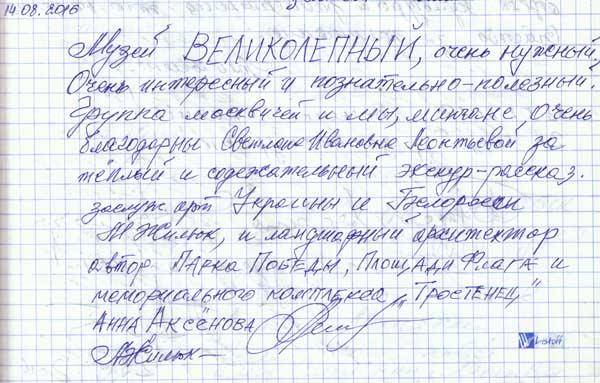 14.08.2016
Музей ВЕЛИКОЛЕПНЫЙ, очень нужный,
Очень интересный и познательно-полезный.
Группа москвичей и мы, минчане, очень
благодарны Светлане Ивановне Леонтьевой за
тёплый и содежательный экскур-рассказ.
заслуж. арт. Украины и Белорусси
М Жилюк, и ландшафный архитектор
автор ПАРКА ПОБЕДЫ, ПЛОЩАДИ ФЛАГА и
мемориального комплекса „Тростенец"
АННА АКСЁНОВА
Жилюк